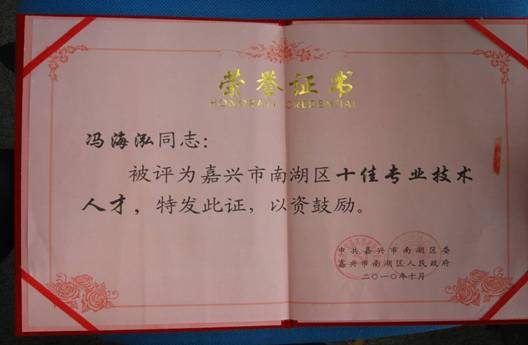 荣誉证书
HONORARY CREDENTIAL
冯海泓同志：
被评为嘉兴市南湖区十佳专业技术
人才，特发此证，以资鼓励。
中共嘉兴市南湖区委
嘉兴市南湖区人民政府
二〇一〇年十月